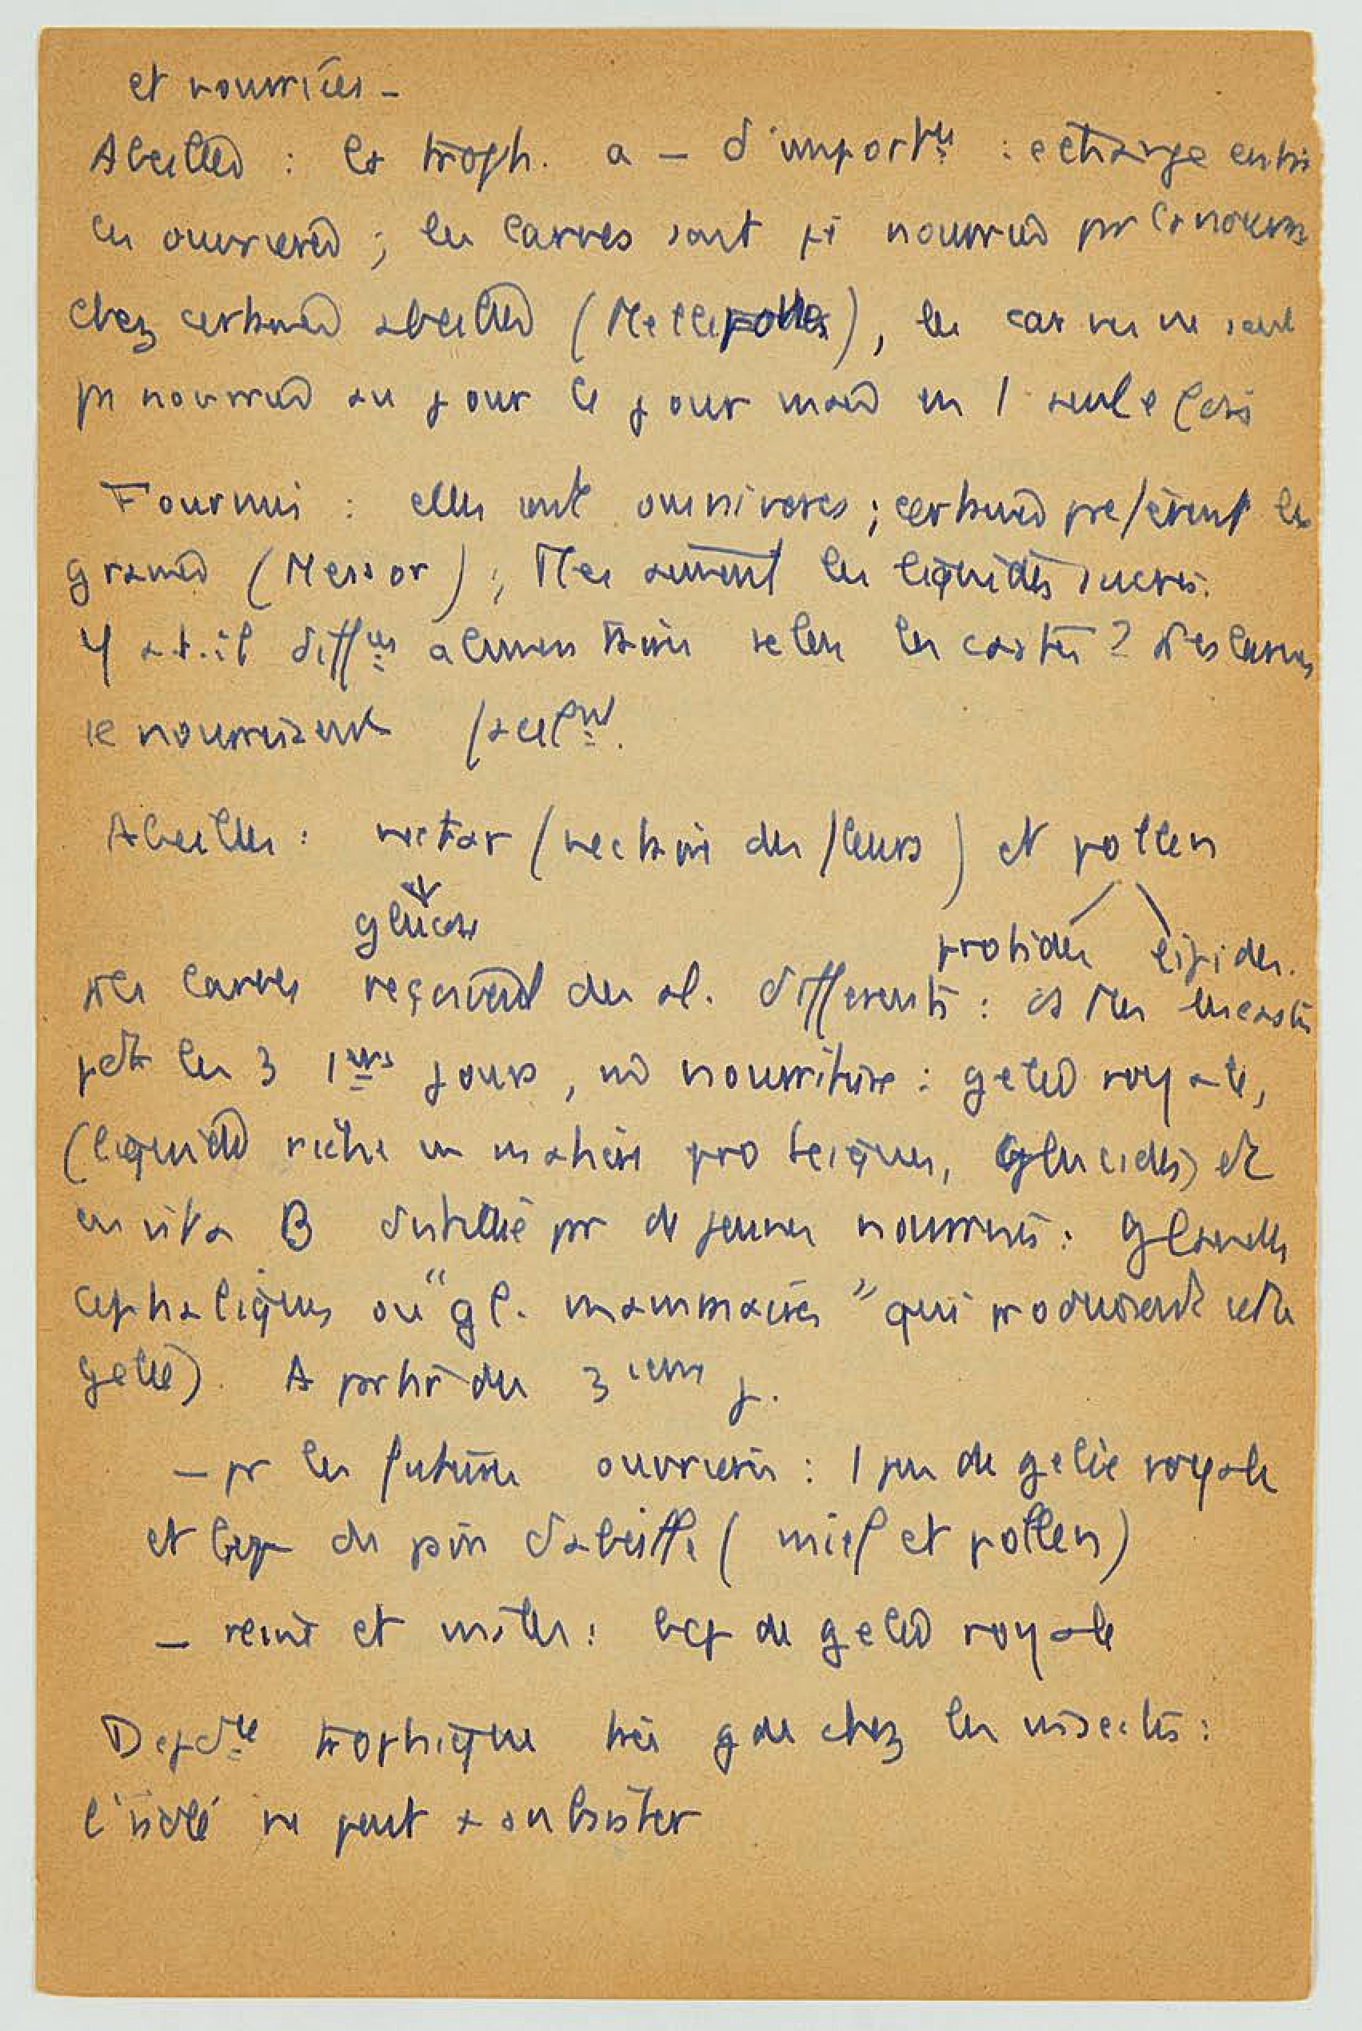 et nourries -
Abeilles : la troph. a - d'import^ce : échange entre
les ouvrières ; les larves sont nourries pr la nourrice
chez certaines abeilles (Melipones), les larves ne sont
ps nourries au jour le jour mais en 1 seule fois
Fourmis : elles sont omnivores ; certaines préfèrent les
graines (Messor) ; Ttes aiment les liquides sucrés.
Y a-t-il diff^ces alimentaires selon les castes ? Les larves
se nourrissent
Abeilles : nectar (nectaire des fleurs) et pollen
glucose
protides lipides.
Les larves reçoivent des al. différents : ds ttes les castes
pdt les 3 1^ers jours, m̂ nourriture : gelée royale,
(liquide riche en matière protéiques, glucides) et
en vita B distillé pr de jeunes nourrices : glandes
céphaliques ou "gl. mammaires" qui produisent cette
gelée). A partir du 3^ième j.
- pr les futures ouvrières : 1 peu de gelée royale
et bcp de pain d'abeille (miel et pollen)
- reine et mâles : bcp de gelée royale
Depd^ce trophique très gde chez les insectes :
l'isolé ne peut subsister